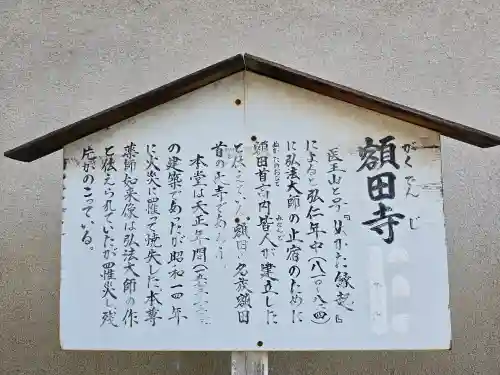 額田寺
がくでん じ
医王山と号し
ぬかた縁起
によると弘仁年中(八一〇-八二四)
に弘法大師の止宿のために
額田首高内皆人が建立した
と伝え
額田の名族額田
首の氏寺であ
本堂は天正年間
の建築であったが昭和一四年
に火災に罹って焼失した。本尊
薬師如来像は弘法大師の作
と伝えられていたが罹災し残
片がのこっている。